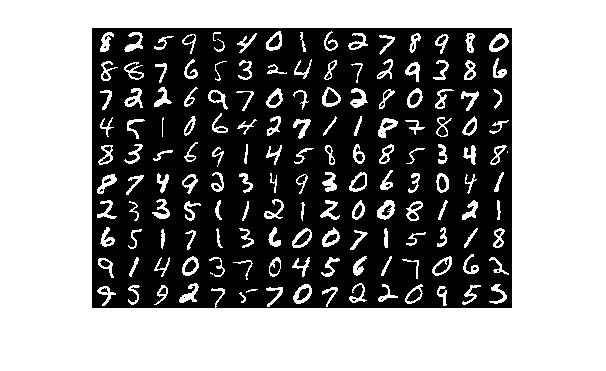 8 2 5 9 5 4 0 1 6 2 7 8 9 8 0
8 8 7 6 5 3 2 4 8 7 2 9 3 8 6
7 2 2 6 9 7 0 7 0 2 8 0 8 7 7
4 5 1 0 6 4 2 7 1 1 8 7 8 0 5
8 3 5 6 9 1 4 5 8 6 8 5 3 4 8
8 7 4 9 2 3 4 9 3 0 6 3 0 4 1
2 3 3 5 1 1 2 1 2 0 0 8 1 2 1
6 5 1 7 1 3 6 0 0 7 1 5 3 1 8
9 1 4 0 3 7 0 4 5 6 1 7 0 6 2
9 5 9 2 7 5 7 0 7 2 2 0 9 5 5